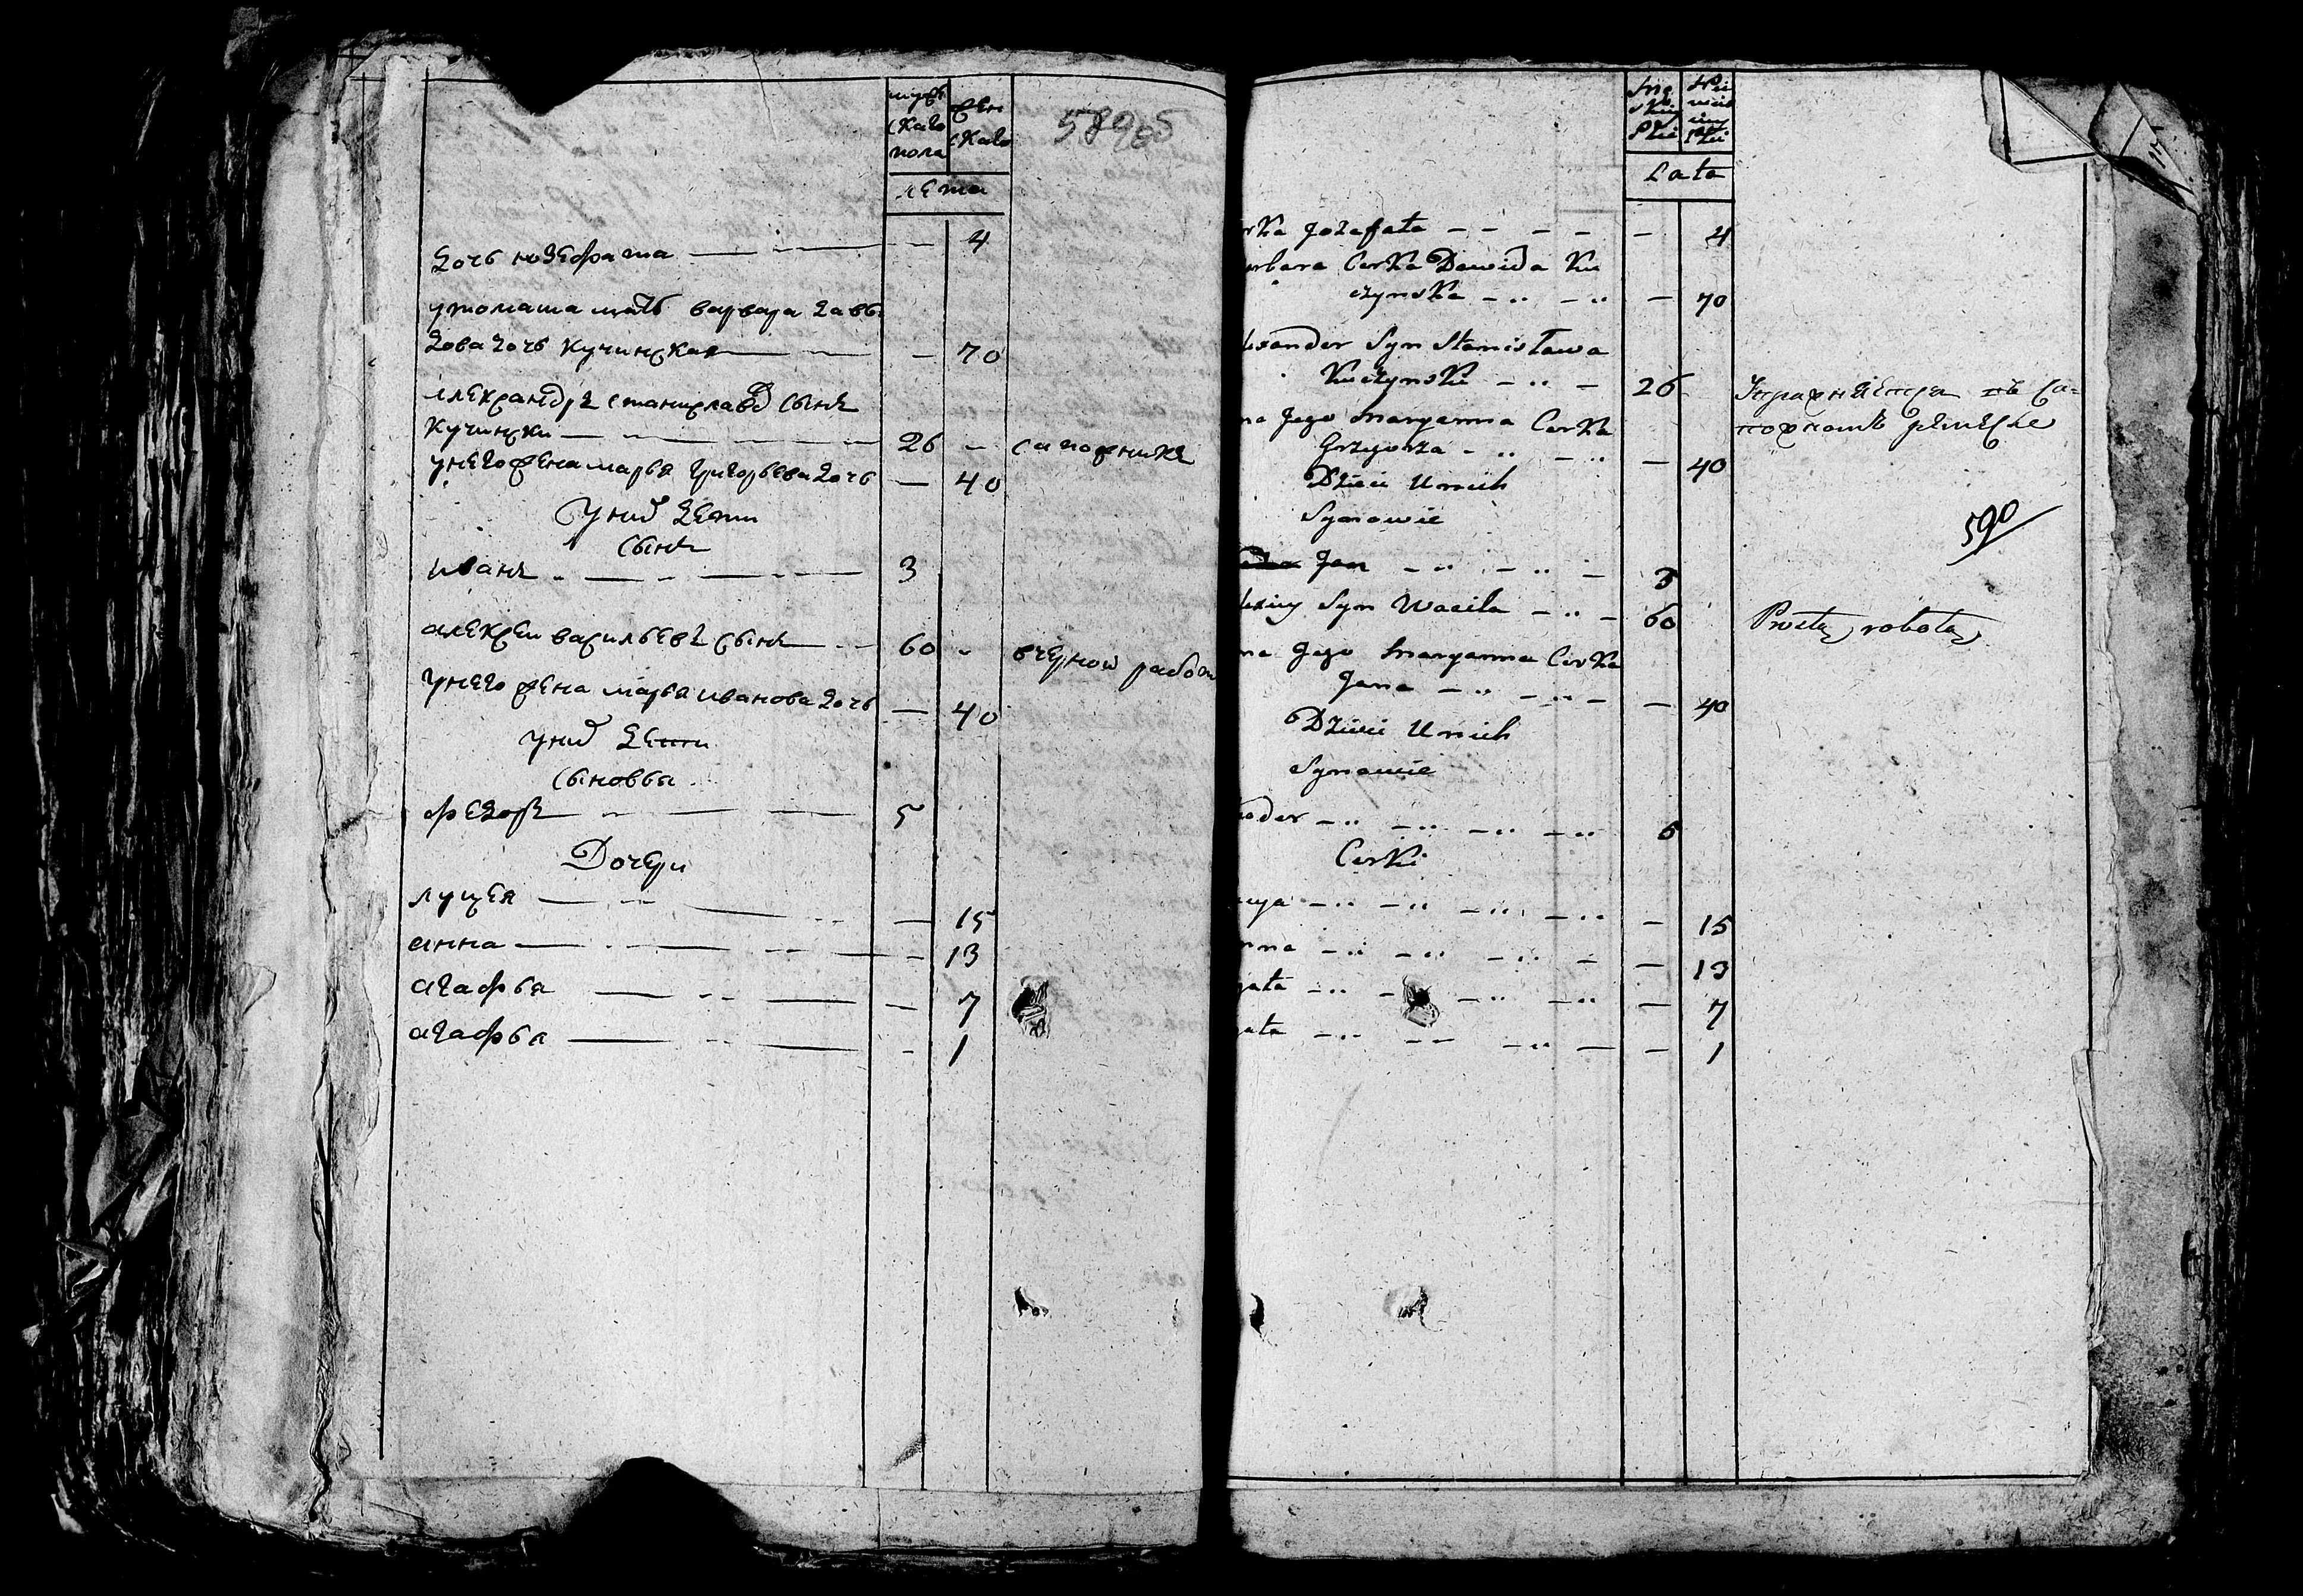 мужс
ска᷎го
пола
жен
скаго
лета
дочь иозефата — — — — 4
у томаша мать варвара давы
дова дочь кучинская — — — 70
александръ станиславо сынъ
кучински — — — 26 — сапожникъ
у него жена марья григорьева дочь — 40
у них дети
сынъ
иванъ — — — 3
алексеи васильевъ сынъ — — 60 — в черной работ
у него жена марья иванова дочь — 40
у них дети
сыновья
федоръ — — — 5
Дочери
луцея — — — — 15
анна — — — — 13
агафья — — — — 7
агафья — — — — 1
Lata
rka Jozefata — — — — — 4
rbara Corka Dawida Ku
czynska — — — 70
lexander Syn Stanisława
Kuczynski — — 26 Упражняется въ са-
пожномъ ремесле
na Jego Maryanna Corka
Grzegorza — — — 40
Dzieci U nich
Synowie
590
Jan — — — 3
lexiey Syn Wasila — — 60 Prostą robotą
na Jego Maryanna Corka
Jana — — — 40
Dzieci U nich
Synowie
odor — — — — 5
Corki
cya — — — — — 15
nna — — — — — 13
gata — — — — — 7
gata — — — — — 1